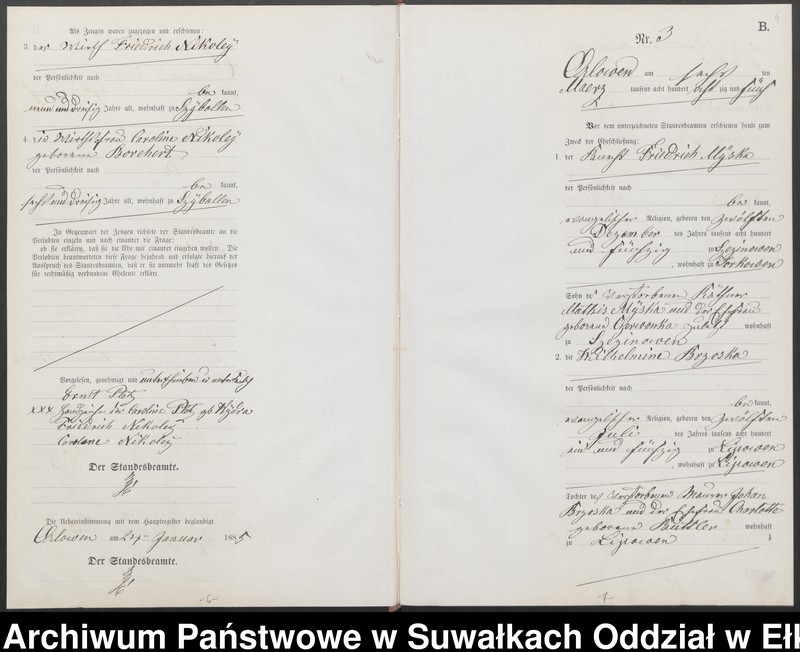 Als Zeugen waren zugezogen und erschienen:
3. der Wirth Friedrich Nikoley
der Persönlichkeit nach
be kannt,
neun und dreißig Jahre alt, wohnhaft zu Szyballen
4. die Wirthsfrau Caroline Nikoley
geborene Borchert
der Persönlichkeit nach
be kannt,
sechs und dreißig Jahre alt, wohnhaft zu Szyballen
In Gegenwart der Zeugen richtete der Standesbeamte an die
Verlobten einzeln und nach einander die Frage:
ob sie erklären, daß sie die Ehe mit einander eingehen wollen. Die
Verlobten beantworteten diese Frage bejahend und erfolgte hierauf der
Ausspruch des Standesbeamten, daß er sie nunmehr kraft des Gesetzes
für rechtmäßig verbundene Eheleute erkläre.
Vorgelesen, genehmigt und
Ernst Plotz
xxx Handzeichen der Caroline Plotz gb Wydra
Friedrich Nikoley
Caroline Nikoley
Der Standesbeamte.
Die Uebereinstimmung mit dem Hauptregister beglaubigt
Orlowen am 2ten Januar 1885
Der Standesbeamte.
-6-
B.
Nr. 3
Orlowen am sechs ten
Maerz tausend acht hundert acht zig und fünf
Vor dem unterzeichneten Standesbeamten erschienen heute zum
Zweck der Eheschließung:
1. der Knecht Friedrich Myska
der Persönlichkeit nach
be kannt,
evangelischer Religion, geboren den zwölften
Dezember des Jahres tausend acht hundert
und fünfzig zu Szczinowen
, wohnhaft zu
Sohn des verstorbenen Käthner
Mathis Myska und der Ehefrau
geborene Czerwonka zuletzt wohnhaft
zu Szczinowen
2. die Wilhelmine Brzoska
der Persönlichkeit nach
be kannt,
evangelischer Religion, geboren den zwölften
Juli des Jahres tausend acht hundert
ein und fünfzig zu Lipowen
, wohnhaft zu Lipowen
Tochter des verstorbenen Maurer Johan
Brzoska und der Ehefrau Charlotte
geborene Büttler wohnhaft
zu Lipowen
-7-
Archiwum Państwowe w Suwałkach Oddział w Ełk